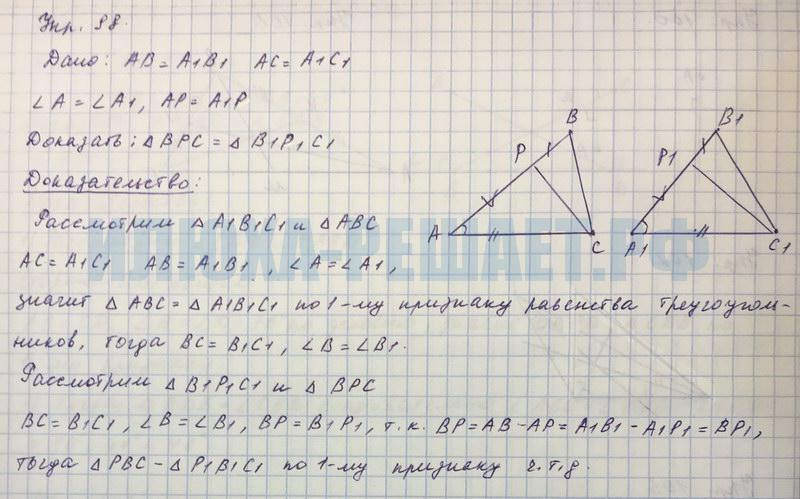 Упр. 98.
Дано: AB = A1B1 AC = A1C1
∠A = ∠A1, AP = A1P
Доказать: △BPC = △B1P1C1
Доказательство:
Рассмотрим △A1B1C1 и △ABC
AC = A1C1 AB = A1B1, ∠A = ∠A1,
значит △ABC = △A1B1C1 по 1-му признаку равенства треугоуголь-
ников, тогда BC = B1C1, ∠B = ∠B1.
Рассмотрим △B1P1C1 и △BPC
BC = B1C1, ∠B = ∠B1, BP = B1P1, т.к. BP = AB - AP = A1B1 - A1P1 = BP1,
тогда △PBC - △P1B1C1 по 1-му признаку ч.т.д.
B
P
A
C
B1
P1
A1
C1
ИДЮХА-РЕШАЕТ.РФ